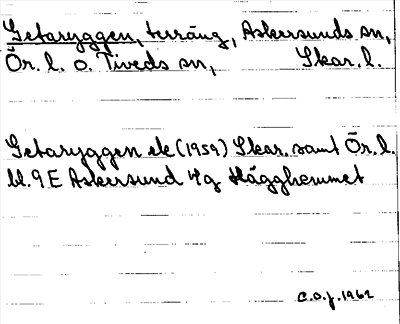 Getaryggen, terräng, Askersunds sn,
Ör. l. o. Tiveds sn, Skar. l.
Getaryggen ek (1959) Skar. samt Ör. l.
bl. 9 E Askersund 4g Hägghemmet
C.O.J. 1962